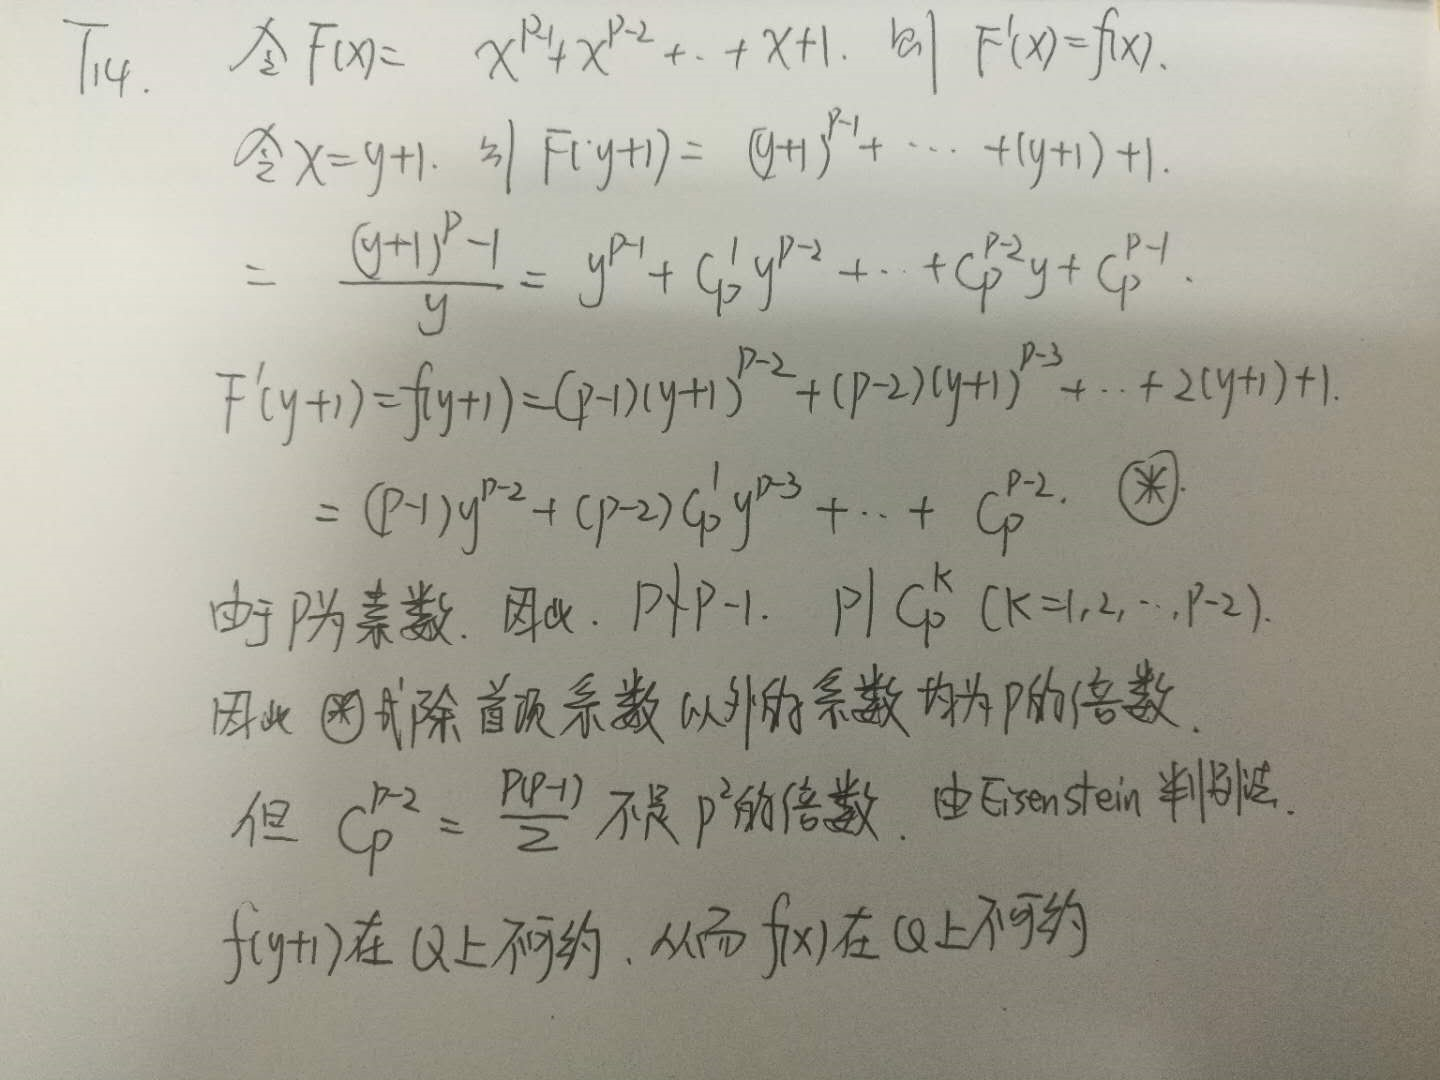 T14. 令 F(x)= x^{p-1}+x^{p-2}+..+x+1. 则 F'(x)=f(x).
令x=y+1. 则 F(y+1)= (y+1)^{p-1}+ ... +(y+1)+1.
= \frac{(y+1)^p-1}{y} = y^{p-1}+C_p^1 y^{p-2}+..+C_p^{p-2}y+C_p^{p-1}.
F'(y+1)=f(y+1)=(p-1)(y+1)^{p-2}+(p-2)(y+1)^{p-3}+..+2(y+1)+1.
= (p-1)y^{p-2}+(p-2)C_p^1 y^{p-3}+..+ C_p^{p-2}. ⊛.
由于p为素数. 因此. p∤p-1. p|C_p^k (k=1,2,..,p-2).
因此 ⊛式除首项系数以外的系数均为p的倍数.
但 C_p^{p-2} = \frac{p(p-1)}{2} 不是p^2的倍数. 由Eisenstein判别法.
f(y+1)在Q上不可约. 从而f(x)在Q上不可约